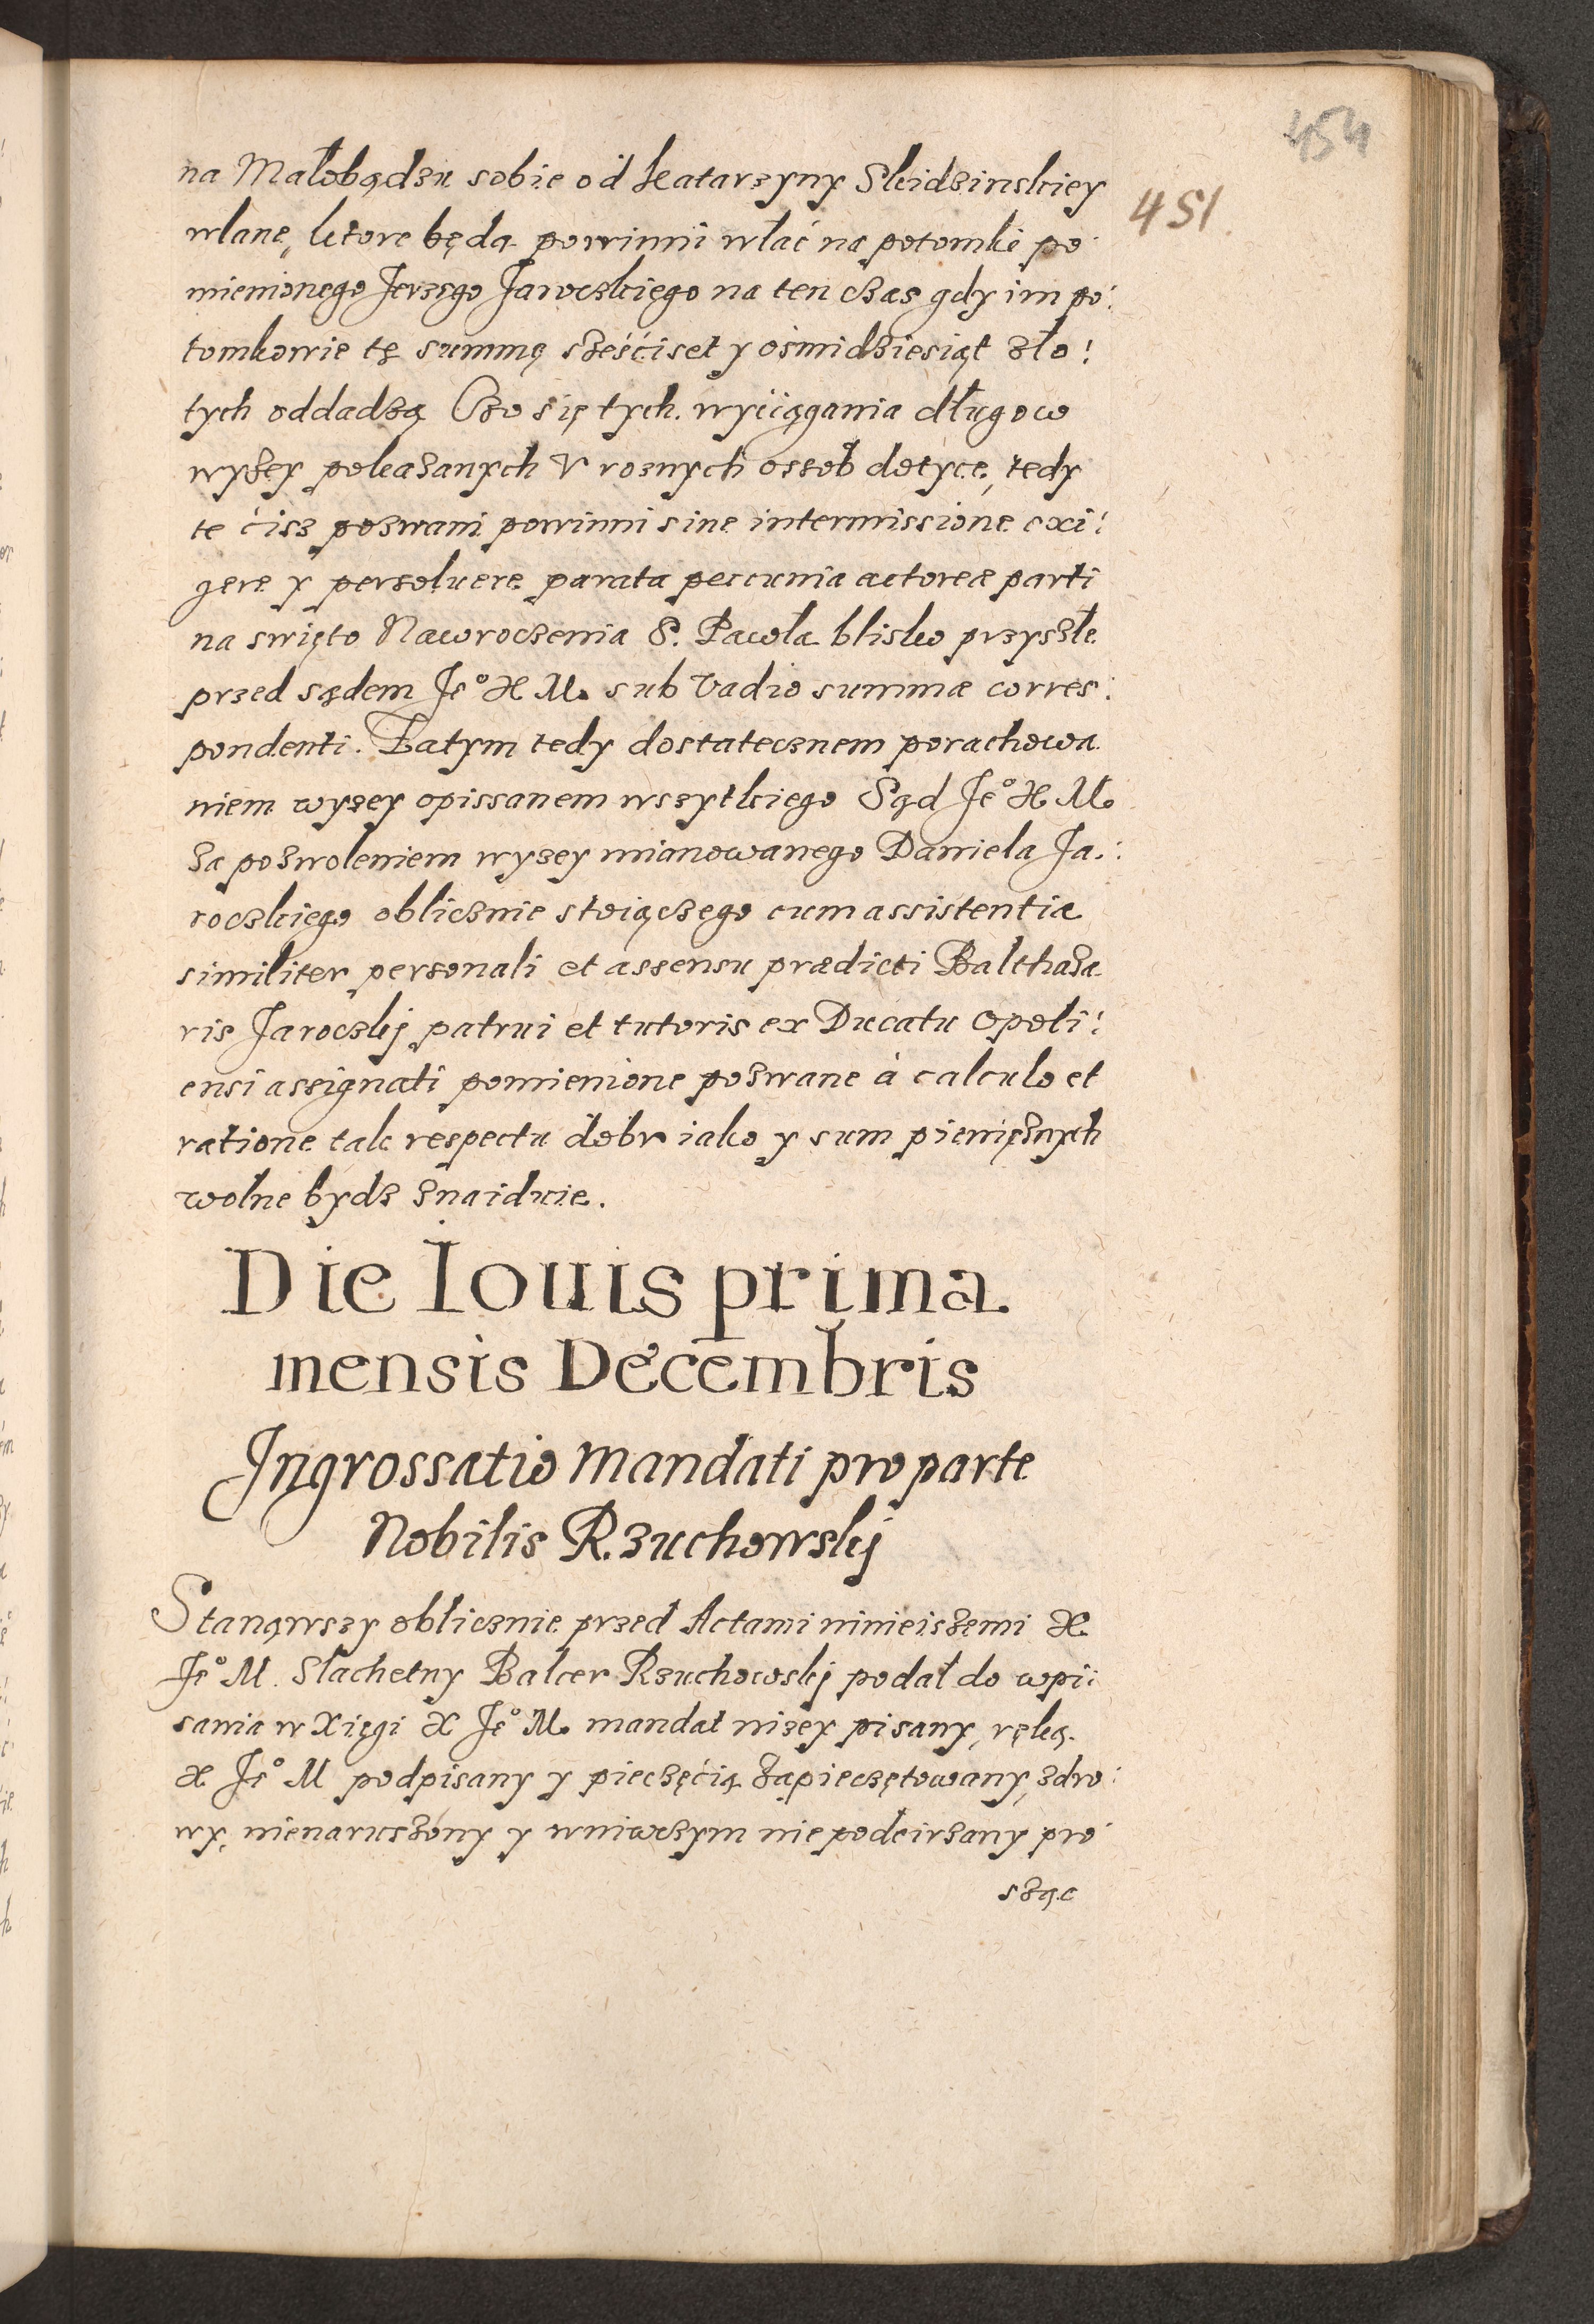 454
451
na Małobądzu sobie od Katarzyny Skidzinskiey
wlane, ktore będą powinni wlać na potomki po:
mienionego Jerzego Jaroczkiego na ten czas gdy im po:
tomkowie tę summę sześćiset y ośmidziesiąt zło:
tych oddadzą Czo się tych wyćiągania długow
wyżey pokazanych V roznych ossob dotyce, tedy
te ćisz pozwani powinni sine intermissione exi:
gere y persoluere parata peccunia actoreæ parti
na swięto Nawroczenia S. Pawła blisko przyszłe
przed sądem Je° X M. sub vadio summæ corres:
pondenti. Zatym tedy dostatecznem porachowa
niem wyzey opissanem wszytkiego Sąd Je° X M.
za pozwoleniem wyzey mianowanego Daniela Ja:
roczkiego oblicznie stoiączego cum assistentia
similiter personali et assensu prædicti Balthaza
ris Jaroczkj patrui et tutoris ex Ducatu Opoli:
ensi assignati pomienione pozwane à calculo et
ratione tak respectu dobr iako y sum pieniężnych
wolne bydz znaiduie.
Die Iouis prima
mensis Decembris
Ingrossatio Mandati pro parte
Nobilis Rzuchowskj
Stanąwszy oblicznie przed Actami ninieiszemi X.
Je° M. Slachetny Balcer Rzuchowskj podał do wpi:
sania w Xięgi X Je° M. mandat nizey pisany, ręką
X Je° M podpisany y pieczęćią zapieczętowany, zdro:
wy, nienaruszony y wniwczym nie podeirzany pro
sząc